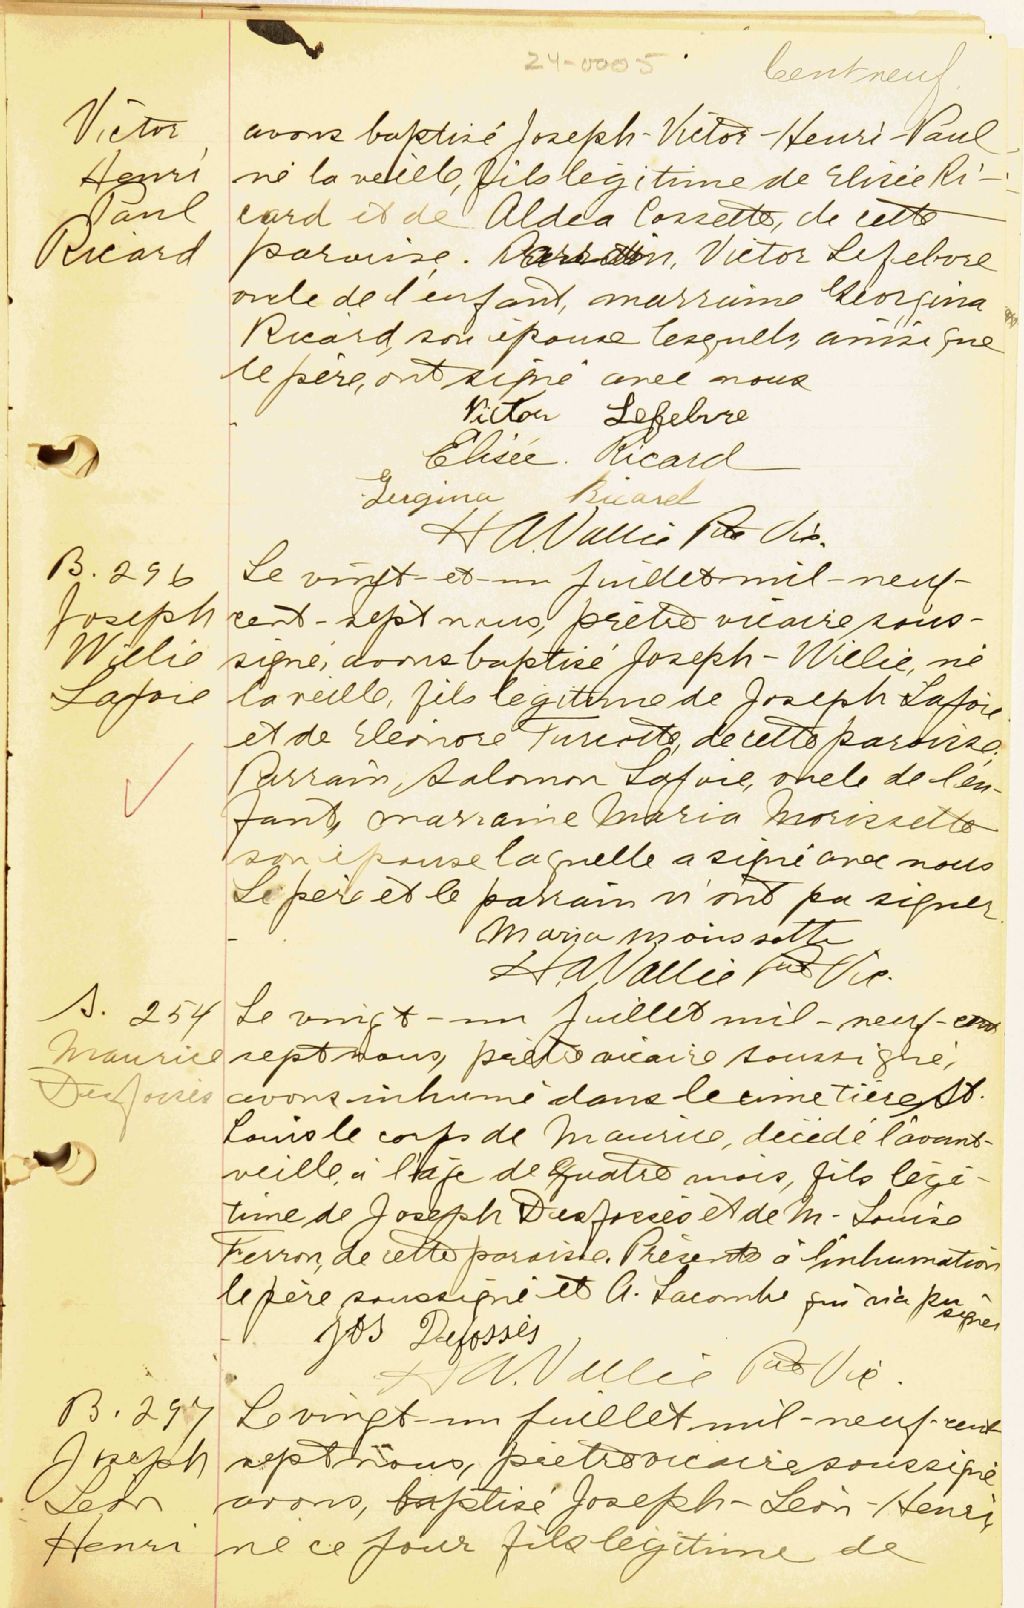 24-0005
Cent neuf
Victor
Henri
Paul
Ricard
avons baptisé Joseph-Victor-Henri-Paul
né la veille, fils légitime de Elisée Ri-
card et de Aldea Cossette, de cette
paroisse. Parrain, Victor Lefebvre
oncle de l'enfant, marraine Georgina
Ricard, son épouse lesquels, ainsi que
le père, ont signé avec nous
Victor Lefebvre
Elisée. Ricard
Gergina Ricard
H A. Vallie Ptre Vic.
B. 296
Joseph
Willie
Lafoie
Le vingt-et-un Juillet mil-neuf-
cent-sept nous, prêtre vicaire sous-
signé, avons baptisé Joseph-Willie, né
la veille, fils légitime de Joseph Lafoie
et de Eléonore Turcotte, de cette paroisse.
Parrain, Salomon Lafoie, oncle de l'en-
fant, marraine Maria Morissette
son épouse laquelle a signé avec nous
Le père et le parrain n'ont pu signer
Maria moissette
H A. Vallie Ptre Vic.
S. 254
Maurice
Desfossés
Le vingt-un Juillet mil-neuf-cent
sept nous, prêtre vicaire soussigné,
avons inhumé dans le cimetière St.
Louis le corps de Maurice, décédé l'avant-
veille, à l'âge de quatre mois, fils légi-
time, de Joseph Desfossés et de M-Louise
Ferron, de cette paroisse. Présents à l'inhumation
le père soussigné et A. Lacombe qui n'a pu
signer
JOS Defossés
H A. Vallie Ptre Vic.
B. 297
Joseph
Léon
Henri
Le vingt-un juillet mil-neuf-cent
sept nous, prêtre vicaire soussigné
avons, baptisé Joseph-Léon-Henri,
né ce jour fils légitime de